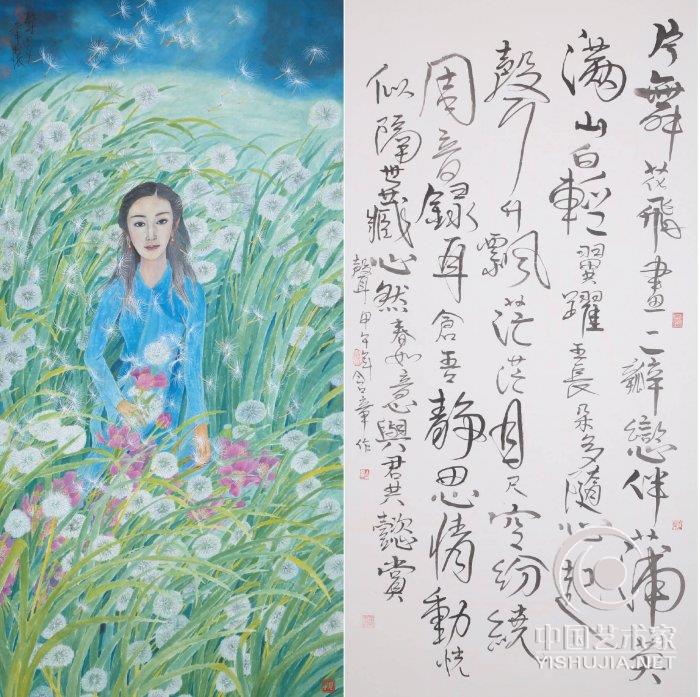 片舞花飛畫二瓣戀伴蒲英
滿山白輕翼躍長朵多隨心起
升飄茫茫目尺空紛繞
周音錄耳含吾靜思情動恍
似隔世藏心然春如意與君共懿賞
聲 甲午年含章作
中国艺术家
YISHUJIA.NET